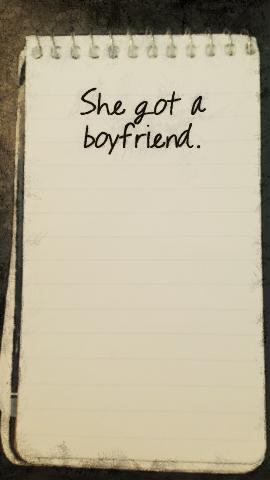 She got a
boyfriend.